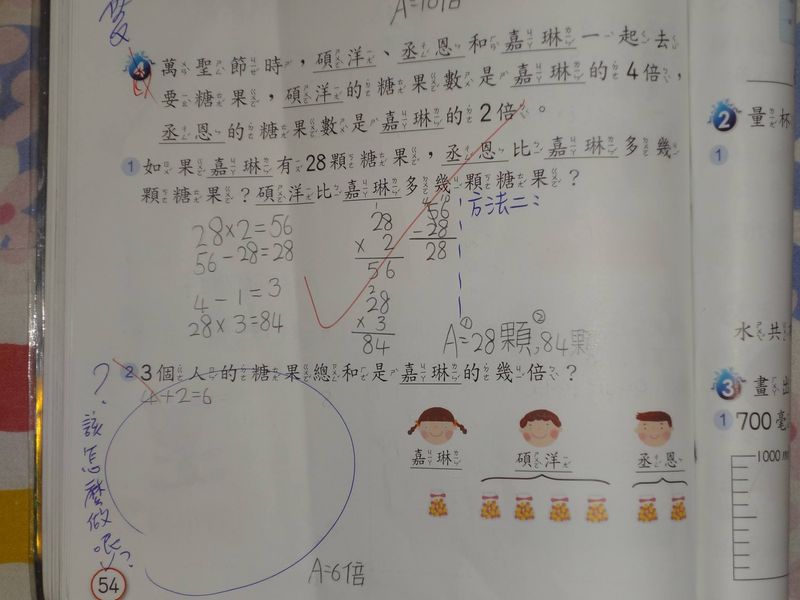 A=10倍
4 萬聖節時，碩洋、丞恩和嘉琳一起去
要糖果，碩洋的糖果數是嘉琳的4倍，
丞恩的糖果數是嘉琳的2倍。
1 如果嘉琳有28顆糖果，丞恩比嘉琳多幾
顆糖果？碩洋比嘉琳多幾顆糖果？
28×2=56
56-28=28
4-1=3
28×3=84
28
× 2
56
28
× 3
84
56
-28
28
方法二：
A=①28顆，②84顆
2 3個人的糖果總和是嘉琳的幾倍？
4+2=6
？該怎麼做呢？
嘉琳
碩洋
丞恩
A=6倍
54
2 量杯
1
水共
3 畫出
1 700毫
1000